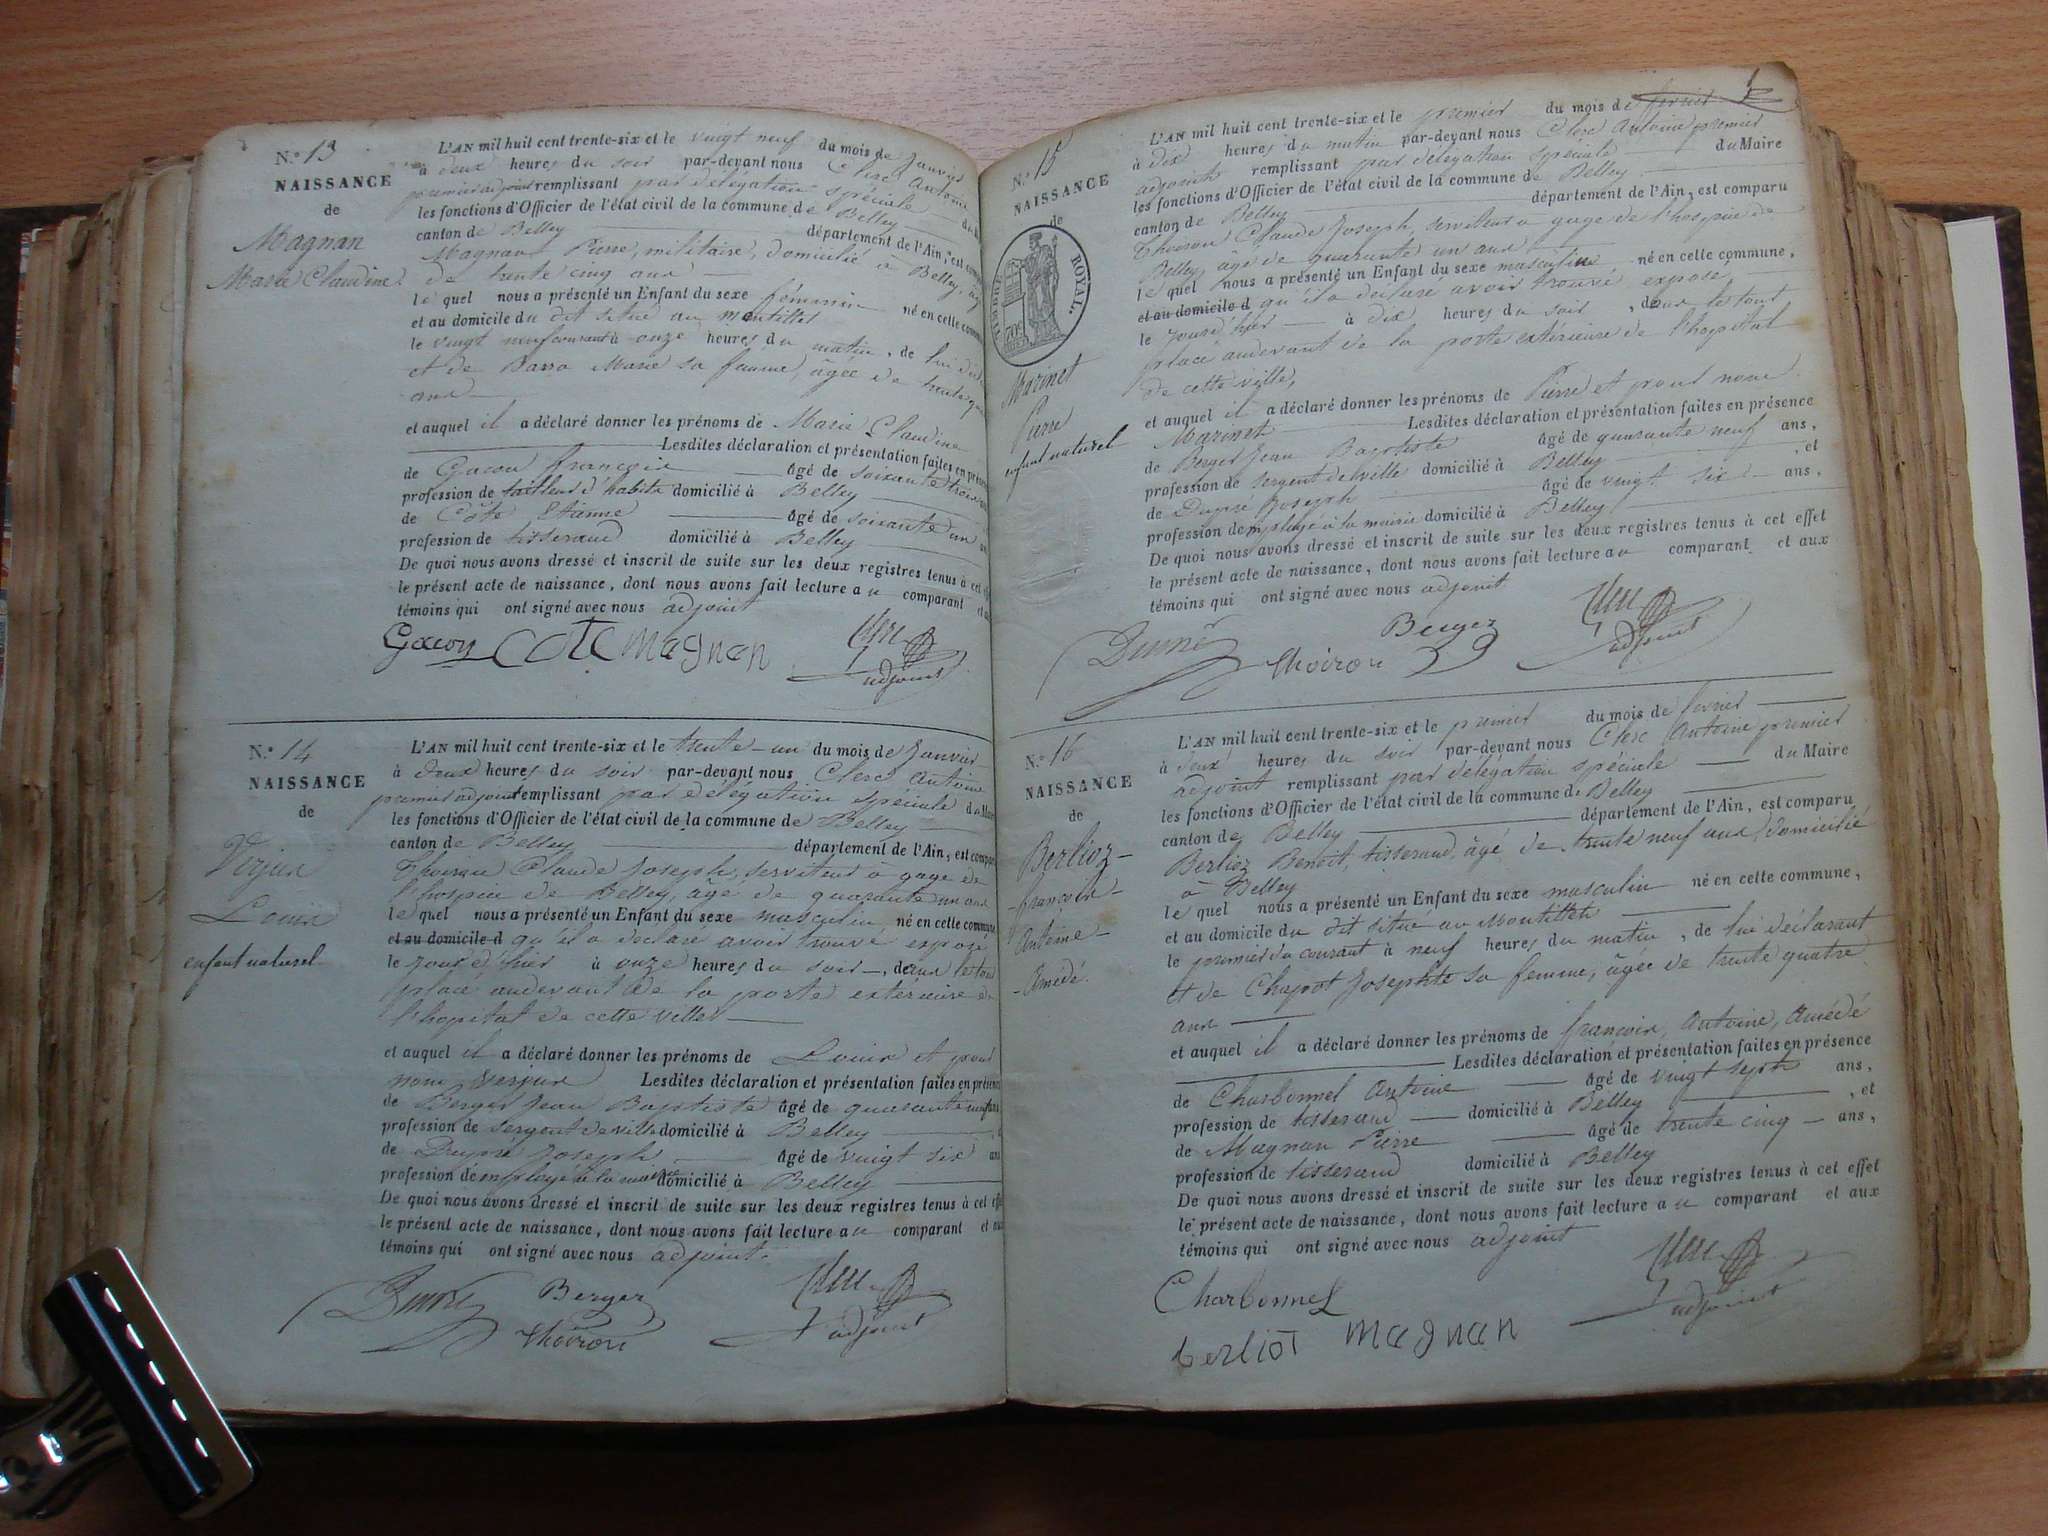 N.° 13
NAISSANCE
de
Magnan
Marie Claudine
L'AN mil huit cent trente-six et le vingt neuf du mois de Janvier
à deux heures du soir par-devant nous Clerc Antoine
premier adjoint remplissant par délégation spéciale
les fonctions d'Officier de l'état civil de la commune de Belley
canton de Belley département de l'Ain, est
Magnan Pierre, militaire, domicilié à Belley,
de trente cinq ans
le quel nous a présenté un Enfant du sexe féminin né en cette
et au domicile du dit situé au Montillet
le vingt neuf courant à onze heures du matin, de lui
et de Marie sa femme, âgée de trente
ans
et auquel il a déclaré donner les prénoms de Marie Claudine
Lesdites déclaration et présentation faites en
de Gacon françois âgé de soixante trois
profession de tailleur d'habits domicilié à Belley
de Côte Etienne âgé de soixante un
profession de tisserand domicilié à Belley
De quoi nous avons dressé et inscrit de suite sur les deux registres tenus à cet
le présent acte de naissance, dont nous avons fait lecture au comparant et
témoins qui ont signé avec nous adjoint
Gacon COTE Magnan Clerc
adjoint
N.° 14
NAISSANCE
de
Verjux
Louis
enfant naturel
L'AN mil huit cent trente-six et le trente-un du mois de Janvier
à deux heures du soir par-devant nous Clerc Antoine
premier adjoint remplissant par délégation spéciale du
les fonctions d'Officier de l'état civil de la commune de Belley
canton de Belley département de l'Ain, est
Thoiron Claude Joseph, serviteur à gage de
l'hospice de Belley, âgé de quarante un ans
le quel nous a présenté un Enfant du sexe masculin né en cette
et au domicile d qu'il a déclaré avoir trouvé exposé
le jour d'hier à onze heures du soir, dans le tour
placé audevant de la porte extérieure de
l'hopital de cette ville
et auquel il a déclaré donner les prénoms de Louis et pour
nom Verjux Lesdites déclaration et présentation faites en
de Berger Jean Baptiste âgé de quarante neuf
profession de sergent de ville domicilié à Belley
de Dupré Joseph âgé de vingt six ans
profession de employé à la mairie domicilié à Belley
De quoi nous avons dressé et inscrit de suite sur les deux registres tenus à cet
le présent acte de naissance, dont nous avons fait lecture au comparant et
témoins qui ont signé avec nous adjoint.
Dupré Berger Clerc
Thoiron adjoint
N.° 15
NAISSANCE
de
TIMBRE ROYAL
70c
Marinet
Pierre
enfant naturel
L'AN mil huit cent trente-six et le premier du mois de février
à dix heures du matin par-devant nous Clerc Antoine premier
adjoint remplissant par délégation spéciale du Maire
les fonctions d'Officier de l'état civil de la commune de Belley
canton de Belley département de l'Ain, est comparu
Thoiron Claude Joseph, serviteur à gage de l'hospice de
Belley, âgé de quarante un ans
le quel nous a présenté un Enfant du sexe masculin né en cette commune,
et au domicile d qu'il a déclaré avoir trouvé exposé
le jour d'hier à dix heures du soir, dans le tour
placé audevant de la porte extérieure de l'hopital
de cette ville,
et auquel il a déclaré donner les prénoms de Pierre et pour nom
Marinet Lesdites déclaration et présentation faites en présence
de Berger Jean Baptiste âgé de quarante neuf ans,
profession de sergent de ville domicilié à Belley, et
de Dupré Joseph âgé de vingt six ans,
profession de employé à la mairie domicilié à Belley
De quoi nous avons dressé et inscrit de suite sur les deux registres tenus à cet effet
le présent acte de naissance, dont nous avons fait lecture au comparant et aux
témoins qui ont signé avec nous adjoint
Dupré Thoiron Berger Clerc
adjoint
N.° 16
NAISSANCE
de
Berlioz
françois
Antoine
Amédé.
L'AN mil huit cent trente-six et le premier du mois de février
à deux heures du soir par-devant nous Clerc Antoine premier
adjoint remplissant par délégation spéciale du Maire
les fonctions d'Officier de l'état civil de la commune de Belley
canton de Belley département de l'Ain, est comparu
Berlioz Benoit, tisserand, âgé de trente neuf ans, domicilié
à Belley
le quel nous a présenté un Enfant du sexe masculin né en cette commune,
et au domicile du dit situé au Montillet
le premier du courant à neuf heures du matin, de lui déclarant
et de Chapot Josephte sa femme, âgée de trente quatre
ans
et auquel il a déclaré donner les prénoms de françois, Antoine, Amédé
Lesdites déclaration et présentation faites en présence
de Charbonnel Antoine âgé de vingt sept ans,
profession de tisserand domicilié à Belley, et
de Magnan Pierre âgé de trente cinq ans,
profession de tisserand domicilié à Belley
De quoi nous avons dressé et inscrit de suite sur les deux registres tenus à cet effet
le présent acte de naissance, dont nous avons fait lecture au comparant et aux
témoins qui ont signé avec nous adjoint
Charbonnel Clerc
adjoint
berliot Magnan